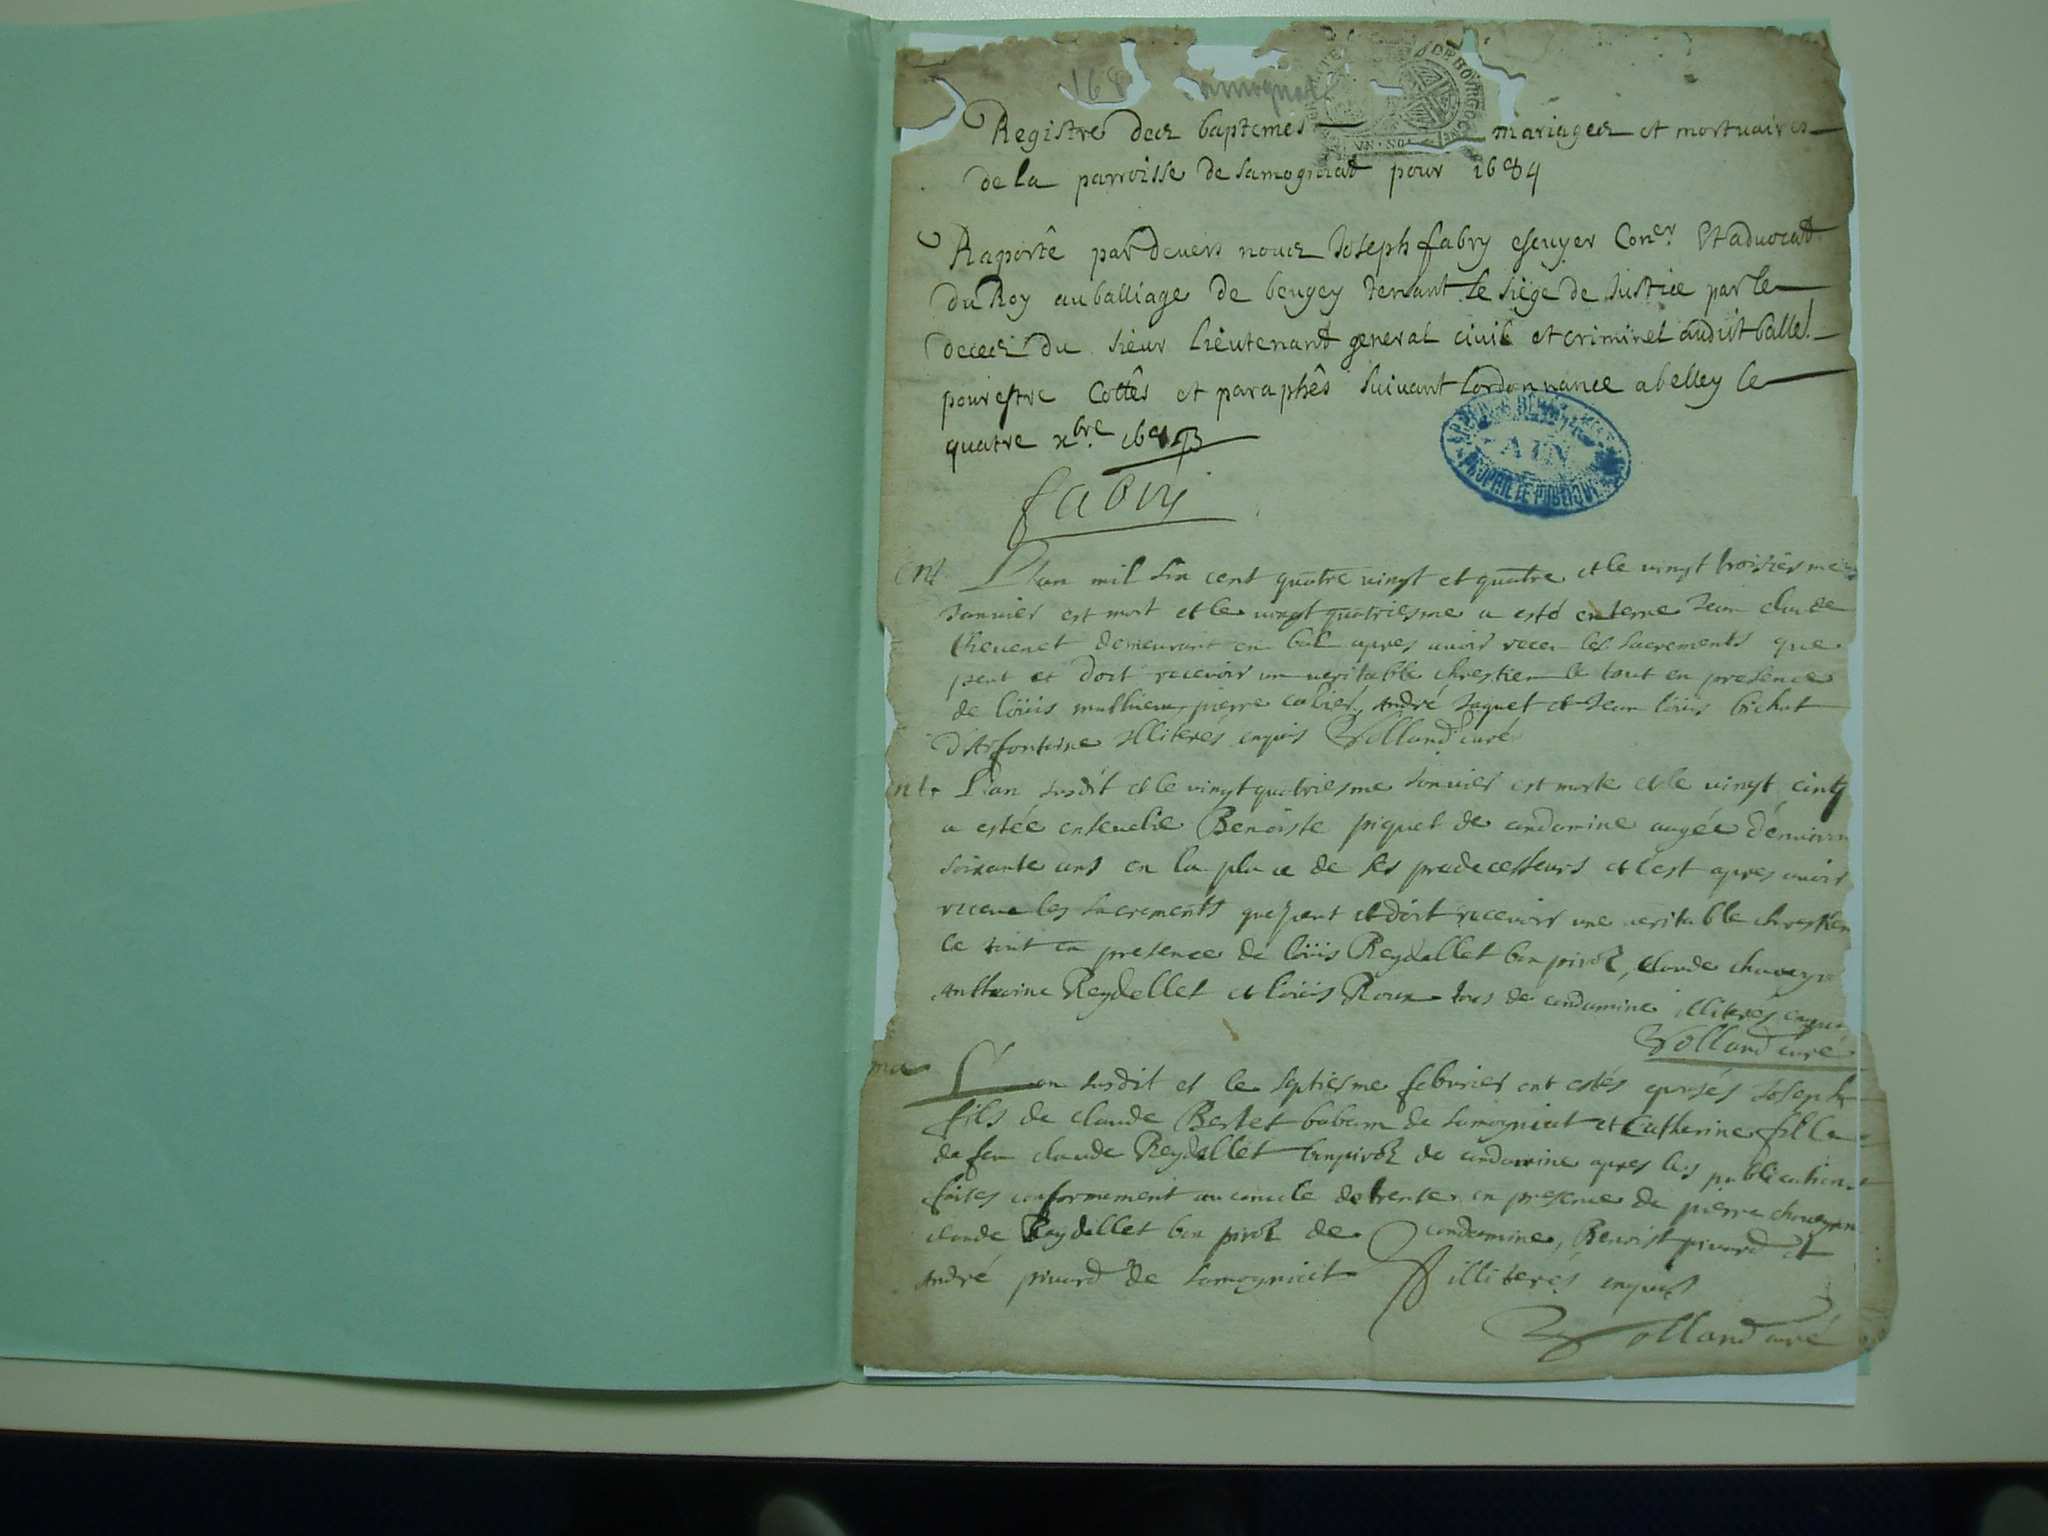 168 amognat
DE BOVRGOGNE
Registre des baptemes mariages et mortuaires
de la parroisse de Samogniat pour 1684
Raporté pardevers nous Joseph fabry escuyer Con.er Et aduocat
du Roy au balliage de beugey tenant le siege de Justice par le
deces du sieur Lieutenant general civil et criminel audit balle.
pour estre Cottés et paraphés suivant Lordonnance a belley le
quatre xbre 1683
fabry
ARCHIVES DEPART
AIN
PROPRIETE PUBLIQUE
ent Lan mil six cent quatre vingt et quatre et le vingt troisiesme
Januier est mort et le vingt quatriesme a esté enterre Jean claude
theuenet demeurant en apres auoir receu les sacrements que
peut et doit recevoir un veritable chrestien le tout en presence
de loüis mathieu, pierre André Jaquet et Jean loüis bichat
d'Arfontaine illiterés enquis Volland curé
nt. L'an susdit et le vingt quatriesme Januier est morte et le vingt cinq
a estée enseuelie Benoiste piquet de condamine augée d'enuiron
soixante ans en la place de ses predecesseurs et c'est apres auoir
receue les sacrements que peut et doit recevoir une veritable chrestien
le tout en presence de loüis Reydellet bon pirot, claude
Antthoine Reydellet et loüis Roux tous de condamine illiterés enquis
Volland curé
ma L'an susdit et le septiesme feburier ont estés eposés Joseph
fils de claude Bertet de Samogniat et Catherine fille
de feu claude Reydellet bonpirot de condamine apres les publications
faites conformement au concile de trente en presence de pierre
claude Reydellet bon pirot de condamine, Benoist piuard et
André piuard de Samogniat illiterés enquis
Volland curé